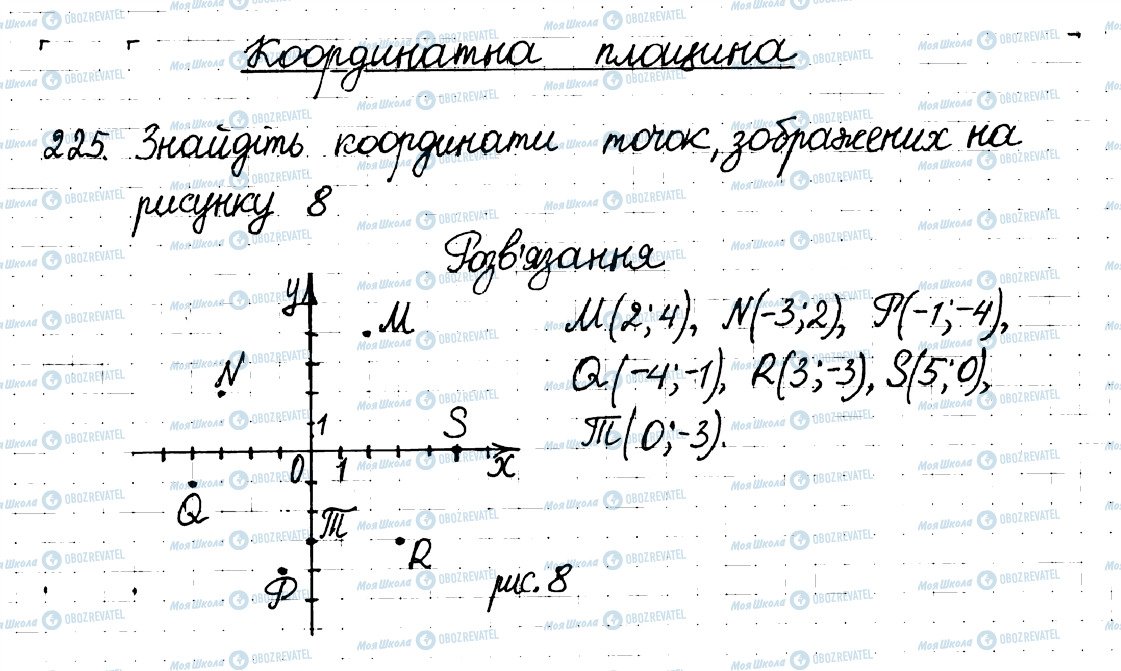 Координатна площина
225. Знайдіть координати точок, зображених на
рисунку 8
Розв'язання
M(2;4), N(-3;2), P(-1;-4),
Q(-4;-1), R(3;-3), S(5;0),
T(0;-3).
y
M
N
1
S
0 1 x
Q
T
R
P
рис. 8
МояШкола OBOZREVATEL